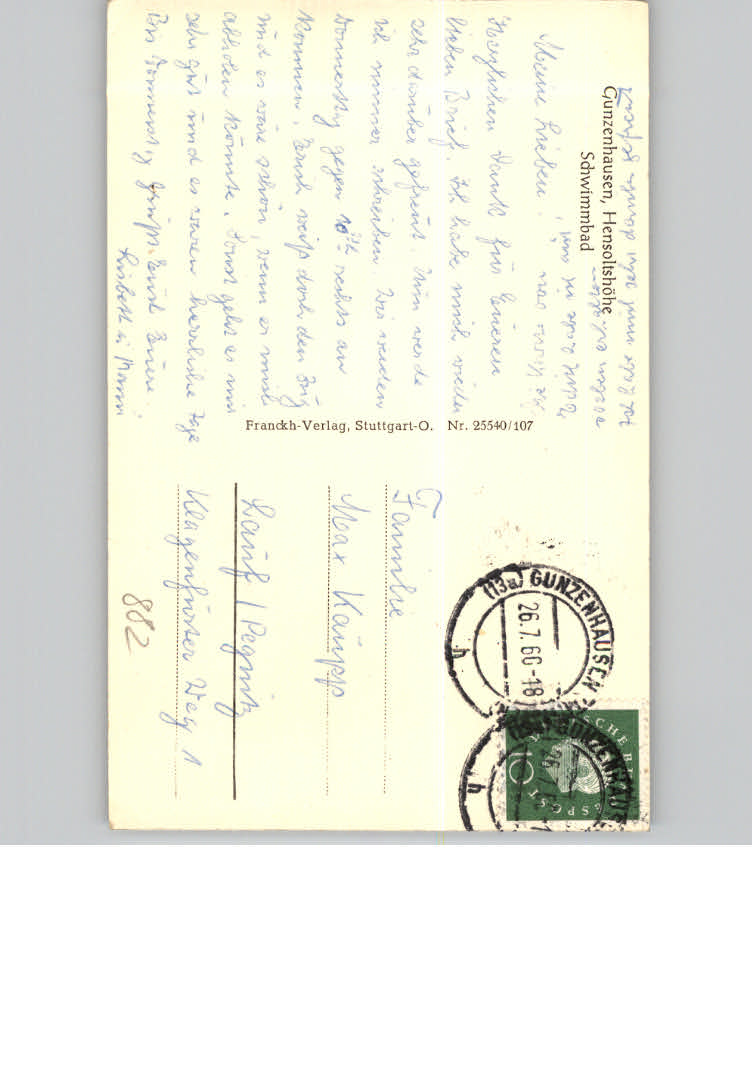 Gunzenhausen, Hensoltshöhe
Schwimmbad
Meine Lieben!
Herzlichen Dank für Eueren
lieben Brief. Ich habe mich wieder
sehr darüber gefreut. Nun werde
ich nimmer schreiben. Wir werden
Donnerstag gegen 10 Uhr nachts an
kommen. Ernst weiß doch den Zug
und es wäre schön, wenn er mich
abholen könnte. Sonst geht es mir
sehr gut und es waren herrliche Tage
Bis Donnerstag grüßt Euch Eure
Lisbeth u. Mama
Franckh-Verlag, Stuttgart-O. Nr. 25540/107
Familie
Max Kaupp
Lauf / Pegnitz
Klagenfurter Weg 1
882
(13a) GUNZENHAUSEN
26.7.60-18
h
GUNZENHAUS
h
10